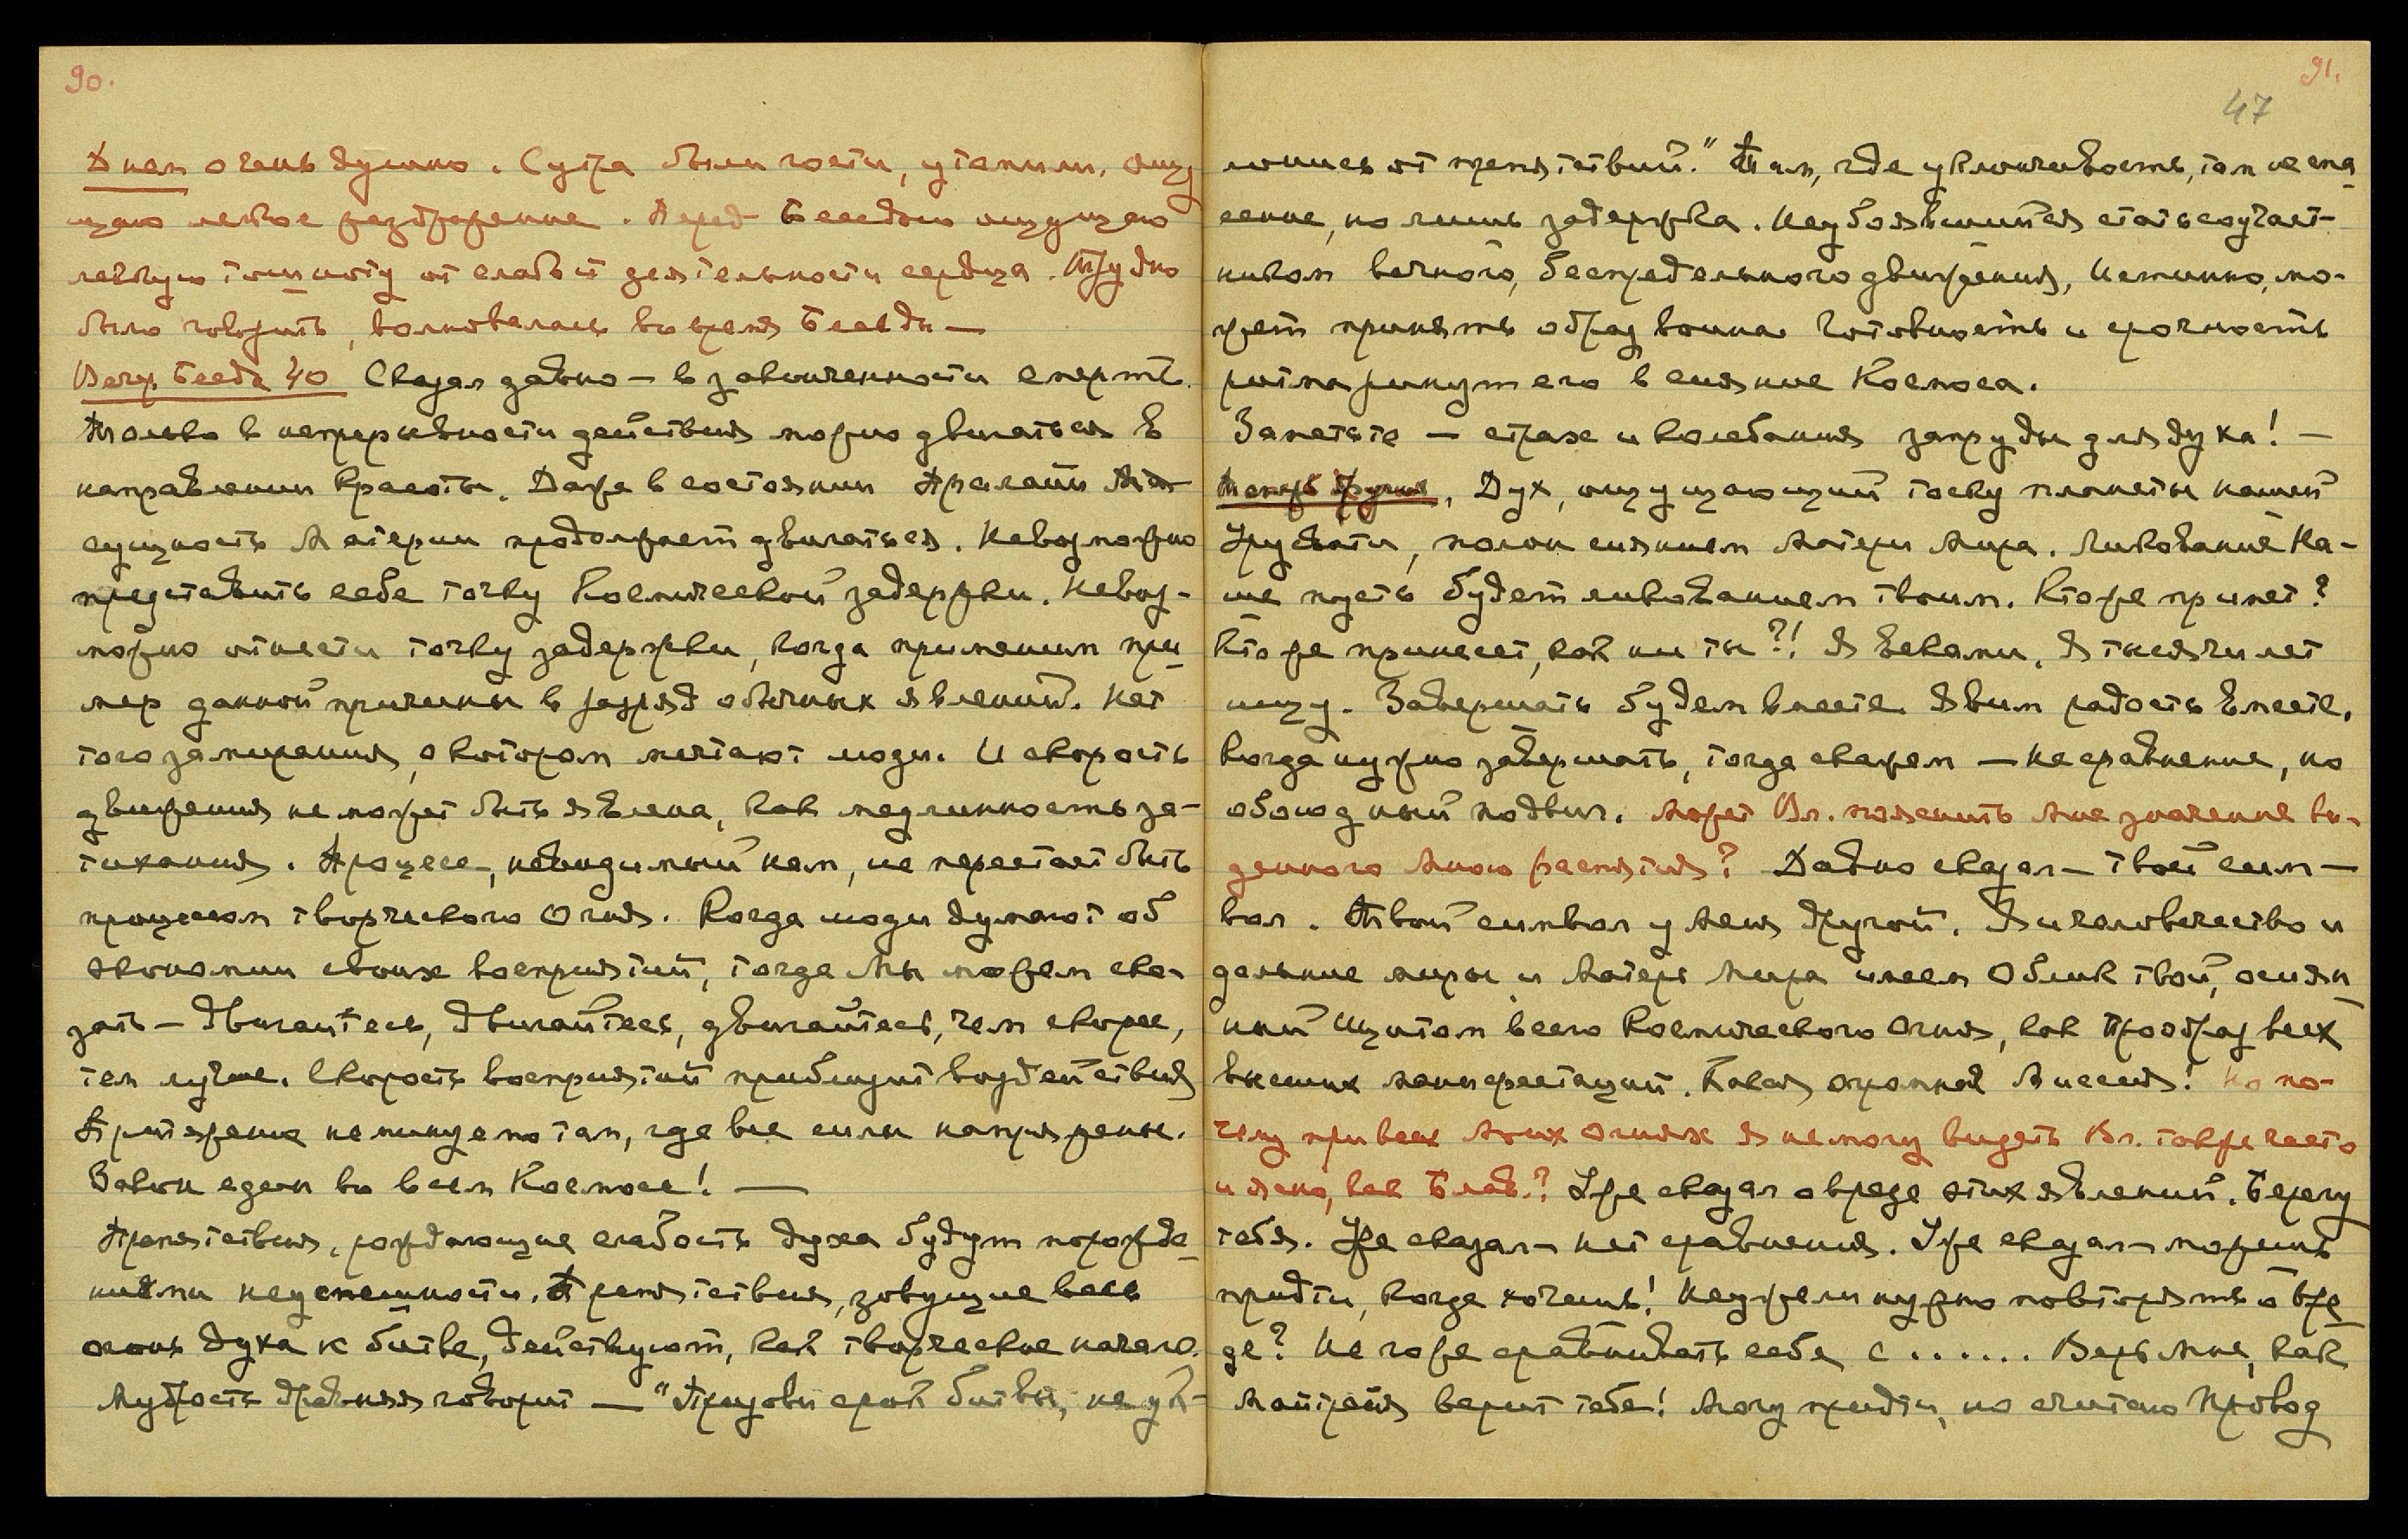 90.
Днем очень душно. С утра были гости, утомили. Ощу
щаю легкое раздражение. Перед Беседою ощущаю
легкую тошноту от слабой деятельности сердца. Трудно
было говорить, волновалась во время Беседы —
Веч. Беседа 40 Сказал давно — в законченности смерть.
Только в непрерывности действия можно двигаться в
направлении красоты. Даже в состоянии Пралайи
сущность Материи продолжает двигаться. Невозможно
представить себе точку Космической задержки. Невоз-
можно отнести точку задержки, когда применим при
мер данной причины в разряд обычных явлений. Нет
того замирания, о котором мечтают люди. И скорость
движения не может быть явлена, как медленность за-
тихания. Процесс, невидимый нам, не перестает быть
процессом творческого Огня. Когда люди думают об
экономии своих восприятий, тогда Мы можем ска-
зать — Двигайтесь, двигайтесь, двигайтесь, чем скорее,
тем лучше. Скорость восприятий приблизит воздействия
Притяжение неминуемо там, где все силы напряжены.
Закон един во всем Космосе! —
Препятствия, рождающие слабость духа будут порожде
ниями неуспешности. Препятствия, зовущие весь
огонь духа к битве, действуют, как творческое начало.
Мудрость древняя говорит — "Призови срок битвы, не ук-
91.
47
лонись от препятствий." Там, где уклончивость, там не спа
сение, но лишь задержка. Неубоявшийся стать соучаст-
ником вечного, беспредельного движения, истинно, мо-
жет принять образ воина. Готовность и срочность
ритма ринут его в сияние Космоса.
Заметьте — страх и колебания запруды для духа! —
Теперь другие. Дух, ощущающий тоску планеты нашей
Урусвати, полон сиянием Матери Мира. Ликование На-
ше пусть будет ликованием твоим. Кто же примет?
Кто же принесет, как ни ты?! Я веками, Я тысячи лет
ищу. Завершать будем вместе. Явим радость вместе.
Когда нужно завершать, тогда скажем — не сравнение, но
обоюдный подвиг. Может Вл. пояснить мне значение ви-
денного мною распятия? Давно сказал — твой сим—
вол. Твой символ у меня другой. Я и человечество и
дальние миры и Матерь Мира имеем Облик твой, осиян
ный Щитом всего Космического Огня, как Прообраз всех
высших манифестаций. Такая огромная Миссия! Но по-
чему при всех моих огнях я не могу видеть Вл. также часто
и ясно, как Блав.? Уже сказал о вреде этих явлений. Берегу
тебя. Уже сказал — нет сравнения. Уже сказал — можешь
придти, когда хочешь! Неужели нужно повторять о вре
де? Не гоже сравнивать себя с ...... Верь Мне, как
Майтрейя верит тебе! Могу придти, но считаю Провод